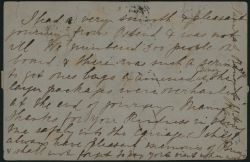 I had a very smooth & pleasant
journey from Ostend & was not
ill. We numbered 300 people on
board & there was such a
to get ones bags examined. The
larger packages were overhauled
at the end of journey. Many
thanks for your kindness in
me safely into the carriage. I shall
always have pleasant memory of
& shall not forget